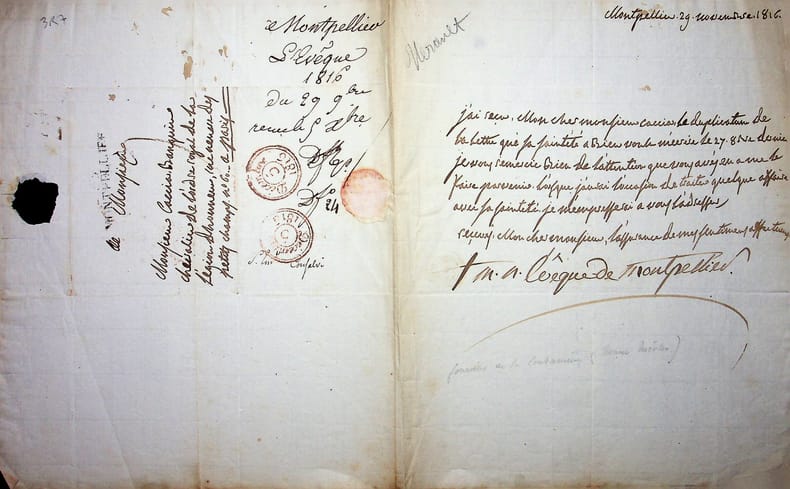 3R7
Montpellier
L'Evêque
1816
du 29 9bre
remis 5 Xbre
24
MONTPELLIER
de Montpellier
Monsieur Caccia Banquier
chevalier de l'ordre royal de la
Légion d'honneur, rue neuve des
petits champs n°
a Paris
1815
1815
Consalvi
Montpellier 29 novembre 1816.
j'ai reçu, Mon cher monsieur caccia, le Duplicatum de
la lettre que sa sainteté a Bien voulu m'écrire le 27. 8bre Dernier
je vous remercie Bien de l'attention que vous avés eu a me le
faire parvenir. lorsque j'aurai l'occasion de traiter quelque affaire
avec sa sainteté je m'empresserai a vous l'adresser
recevés Mon cher monsieur, l'assurance de mes sentimens affectueux
† m. n. L'évêque de Montpellier.